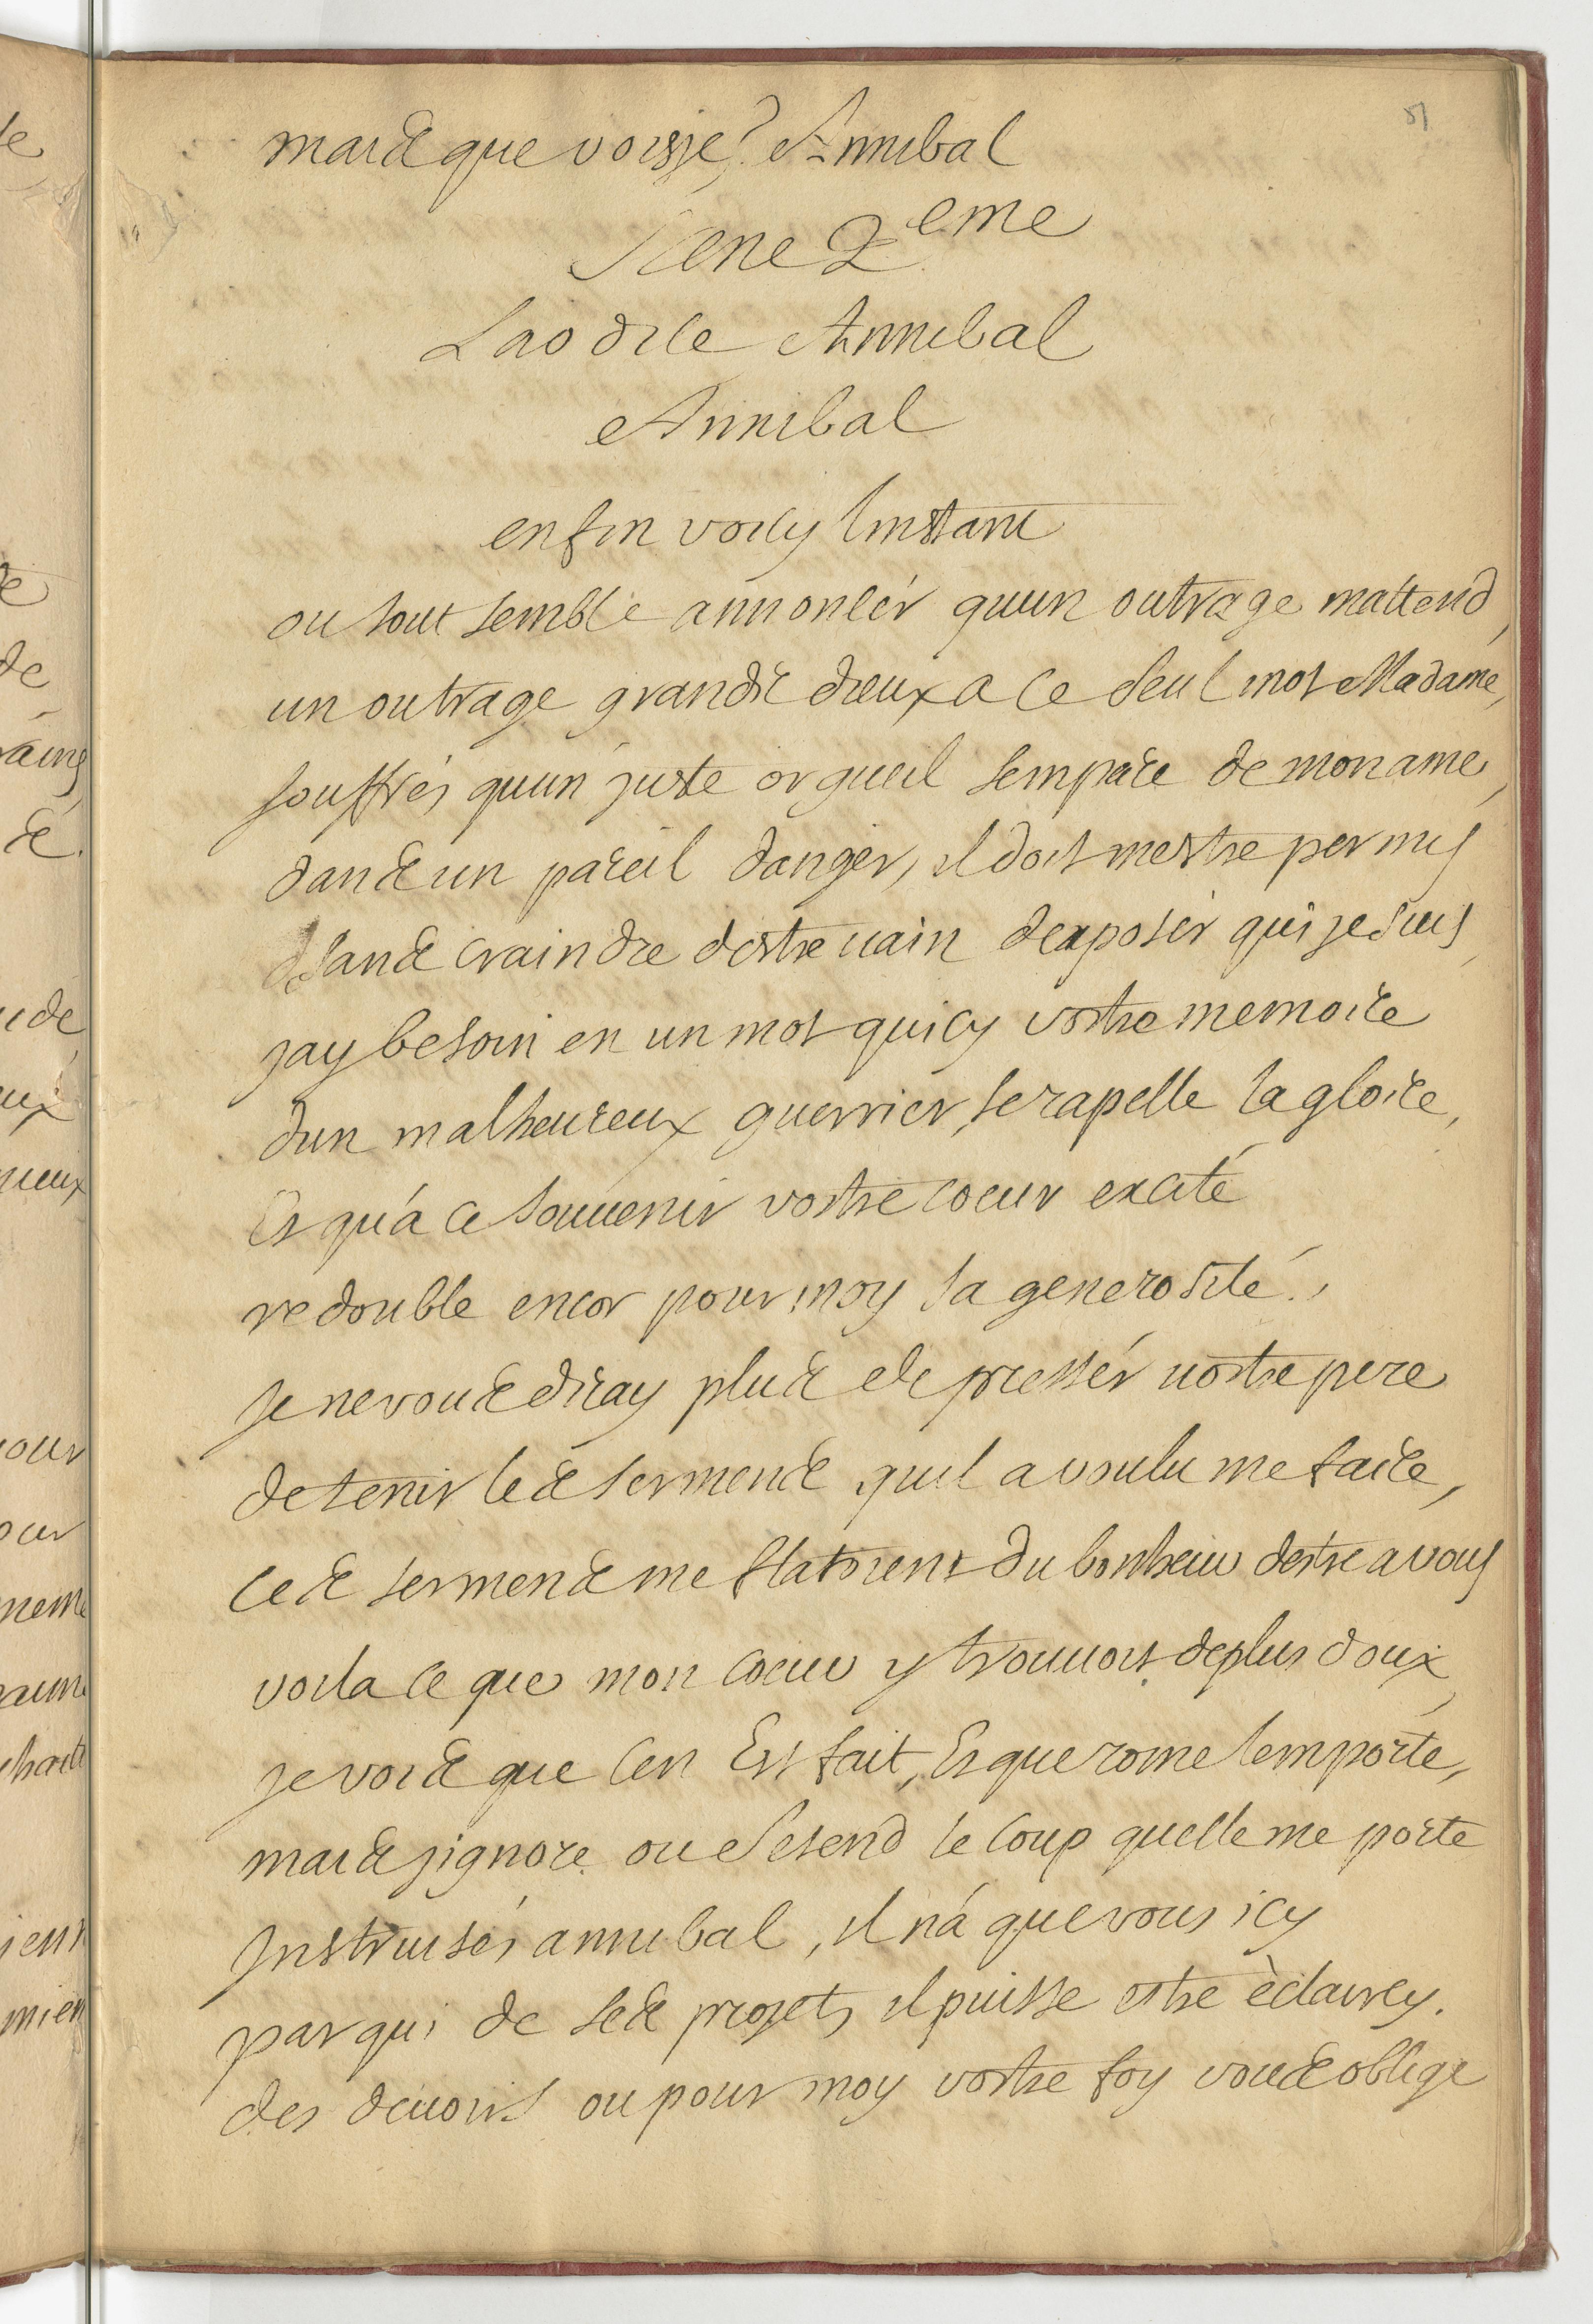 mais que voisje? Annibal
51
scene 2eme
Laodice Annibal
Annibal
enfin voicy linstant
ou tout semble annoncér quun outrage mattend,
un outrage grands dieux a ce seul mot Madame,
souffrés quun juste orgueil sempare de mon ame,
dans un pareil danger, il doit mestre permis
sans craindre destre uain dexposér qui je suis,
jay besoin en un mot quicy vostre memoire
dun malheureux guerrier, se rapelle la gloire,
Et quá ce souuenir vostre coeur excité
redouble encor pour moy sa generosité.,
Je ne vous diray plus de pressér uostre pere
de tenir les sermens quil a voulu me faire,
ces sermens me flatoient du bonheur destre a vous
voila ce que mon coeur y trouuoit de plus doux,
je vois que cen Est fait, Et que rome lemporte,
mais jignore ou setend le coup quelle me porte
Instruisés annibal, il ná que vous icy
par qui de ses projets il puisse estre èclaircy.
des deuoirs ou pour moy vostre foy vous oblige